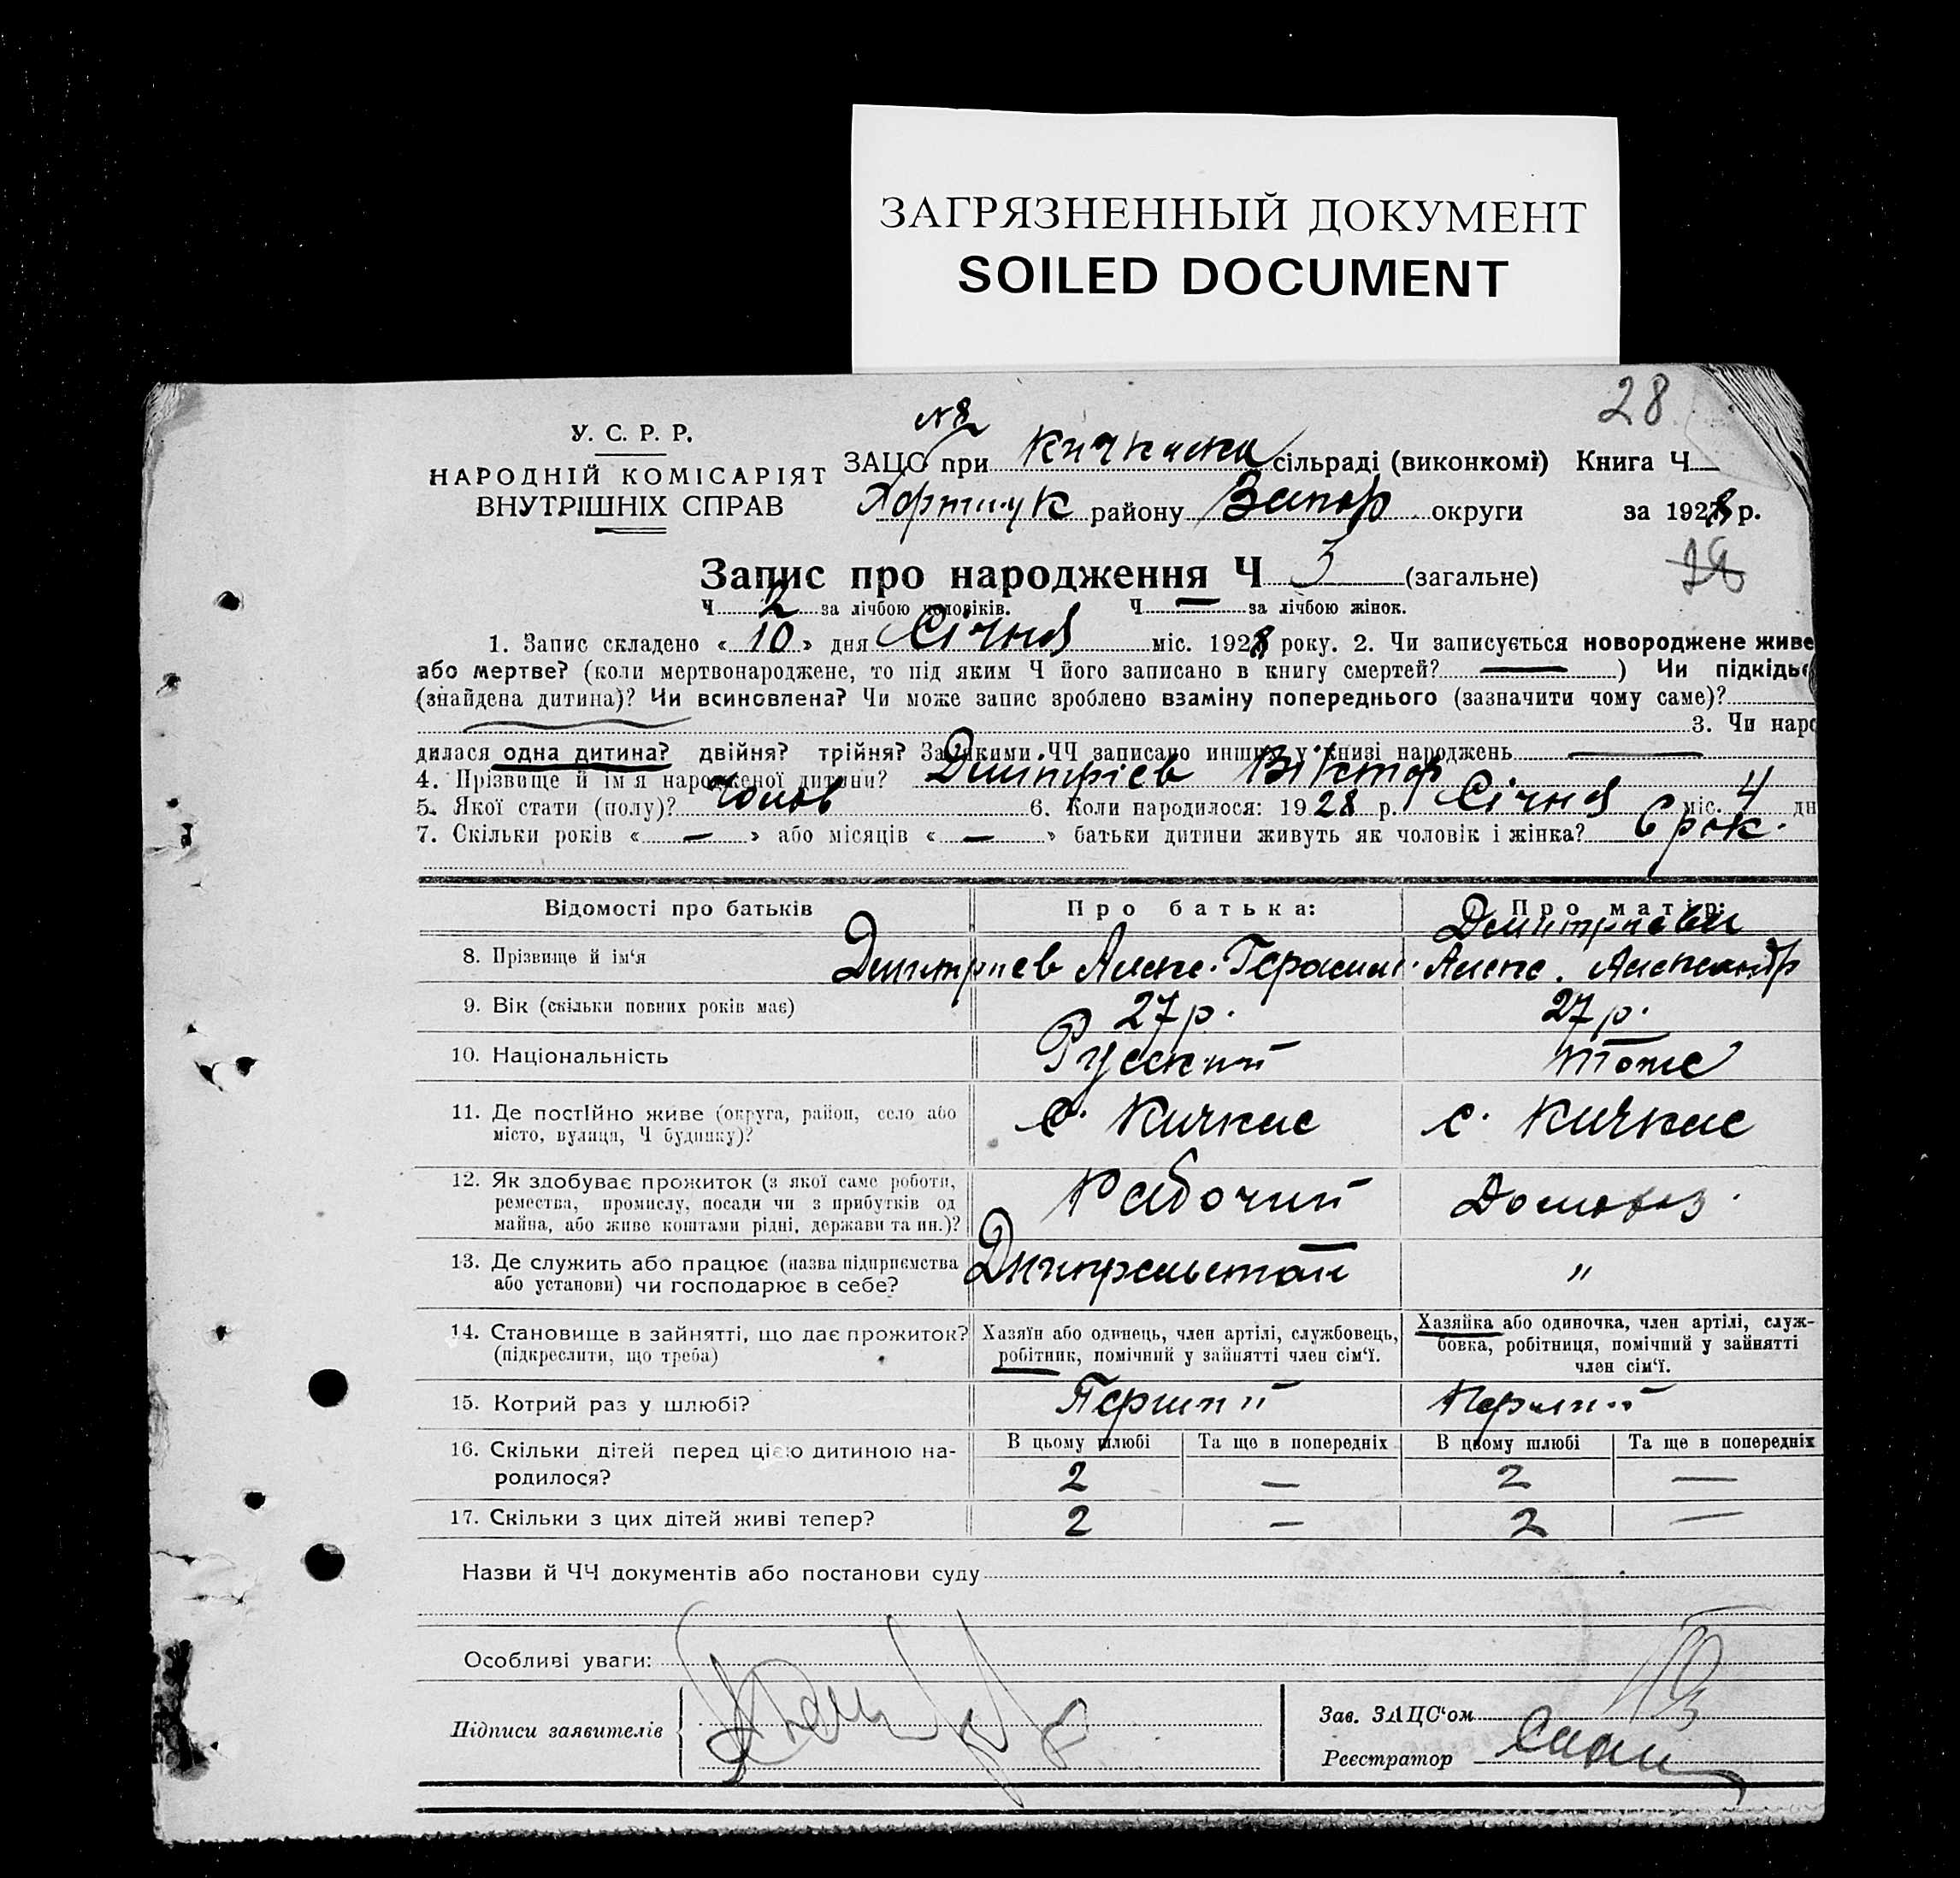 ЗАГРЯЗНЕННЫЙ ДОКУМЕНТ
SOILED DOCUMENT
28
У. С. Р. Р.
НАРОДНІЙ КОМІСАРІЯТ
ВНУТРІШНІХ СПРАВ
№ 8
ЗАЦС при Кичкаска сільраді (виконкомі) Книга Ч
Хортицк району Запор округи за 1928 р.
Запис про народження Ч 3 (загальне)
Ч 2 за лічбою чоловіків. Ч — за лічбою жінок.
1. Запис складено « 10 » дня Січня міс. 1928 року. 2. Чи записується новороджене живе
або мертве? (коли мертвонароджене, то під яким Ч його записано в книгу смертей? — ) Чи підкідьо
(знайдена дитина)? Чи всиновлена? Чи може запис зроблено взаміну попереднього (зазначити чому саме)?
3. Чи наро
дилася одна дитина? двійня? трійня? За якими ЧЧ записано инших у книзі народжень —
4. Прізвище й ім'я народженої дитини? Дмитрієв Віктор
5. Якої стати (полу)? Чолов 6. Коли народилося: 1928 р. Січня міс. 4 дн
7. Скільки років « — » або місяців « — » батьки дитини живуть як чоловік і жінка? 6 рок.
Відомості про батьків Про батька: Про матір:
Дмитриева
8. Прізвище й ім'я Дмитриев Алекс. Герасим. Алекс. Александр
9. Вік (скільки повних років має) 27 р. 27 р.
10. Національність Русский тоже
11. Де постійно живе (округа, район, село або
місто, вулиця, Ч будинку)? с. Кичкас с. Кичкас
12. Як здобуває прожиток (з якої саме роботи,
ремества, промислу, посади чи з прибутків од
майна, або живе коштами рідні, держави та ин.)? Рабочий Домохоз.
13. Де служить або працює (назва підприємства
або установи) чи господарює в себе? Днипрельстан "
14. Становище в зайнятті, що дає прожиток?
(підкреслити, що треба)
Хазяїн або одинець, член артілі, службовець,
робітник, помічний у зайнятті член сім'ї.
Хазяйка або одиночка, член артілі, служ-
бовка, робітниця, помічний у зайнятті
член сім'ї.
15. Котрий раз у шлюбі? Перший Перший
16. Скільки дітей перед цією дитиною на-
родилося?
В цьому шлюбі Та ще в попередніх В цьому шлюбі Та ще в попередніх
2 — 2 —
17. Скільки з цих дітей живі тепер? 2 — 2 —
Назви й ЧЧ документів або постанови суду
Особливі уваги:
Підписи заявителів
Зав. ЗАЦС'ом
Реєстратор